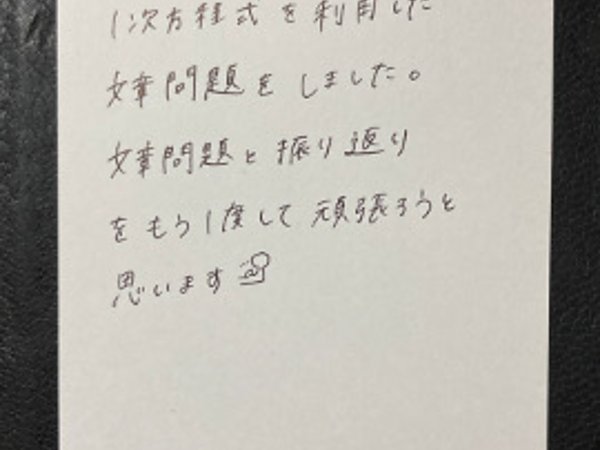 1次方程式を利用した
文章問題をしました。
文章問題と振り返り
をもう1度して頑張ろうと
思います